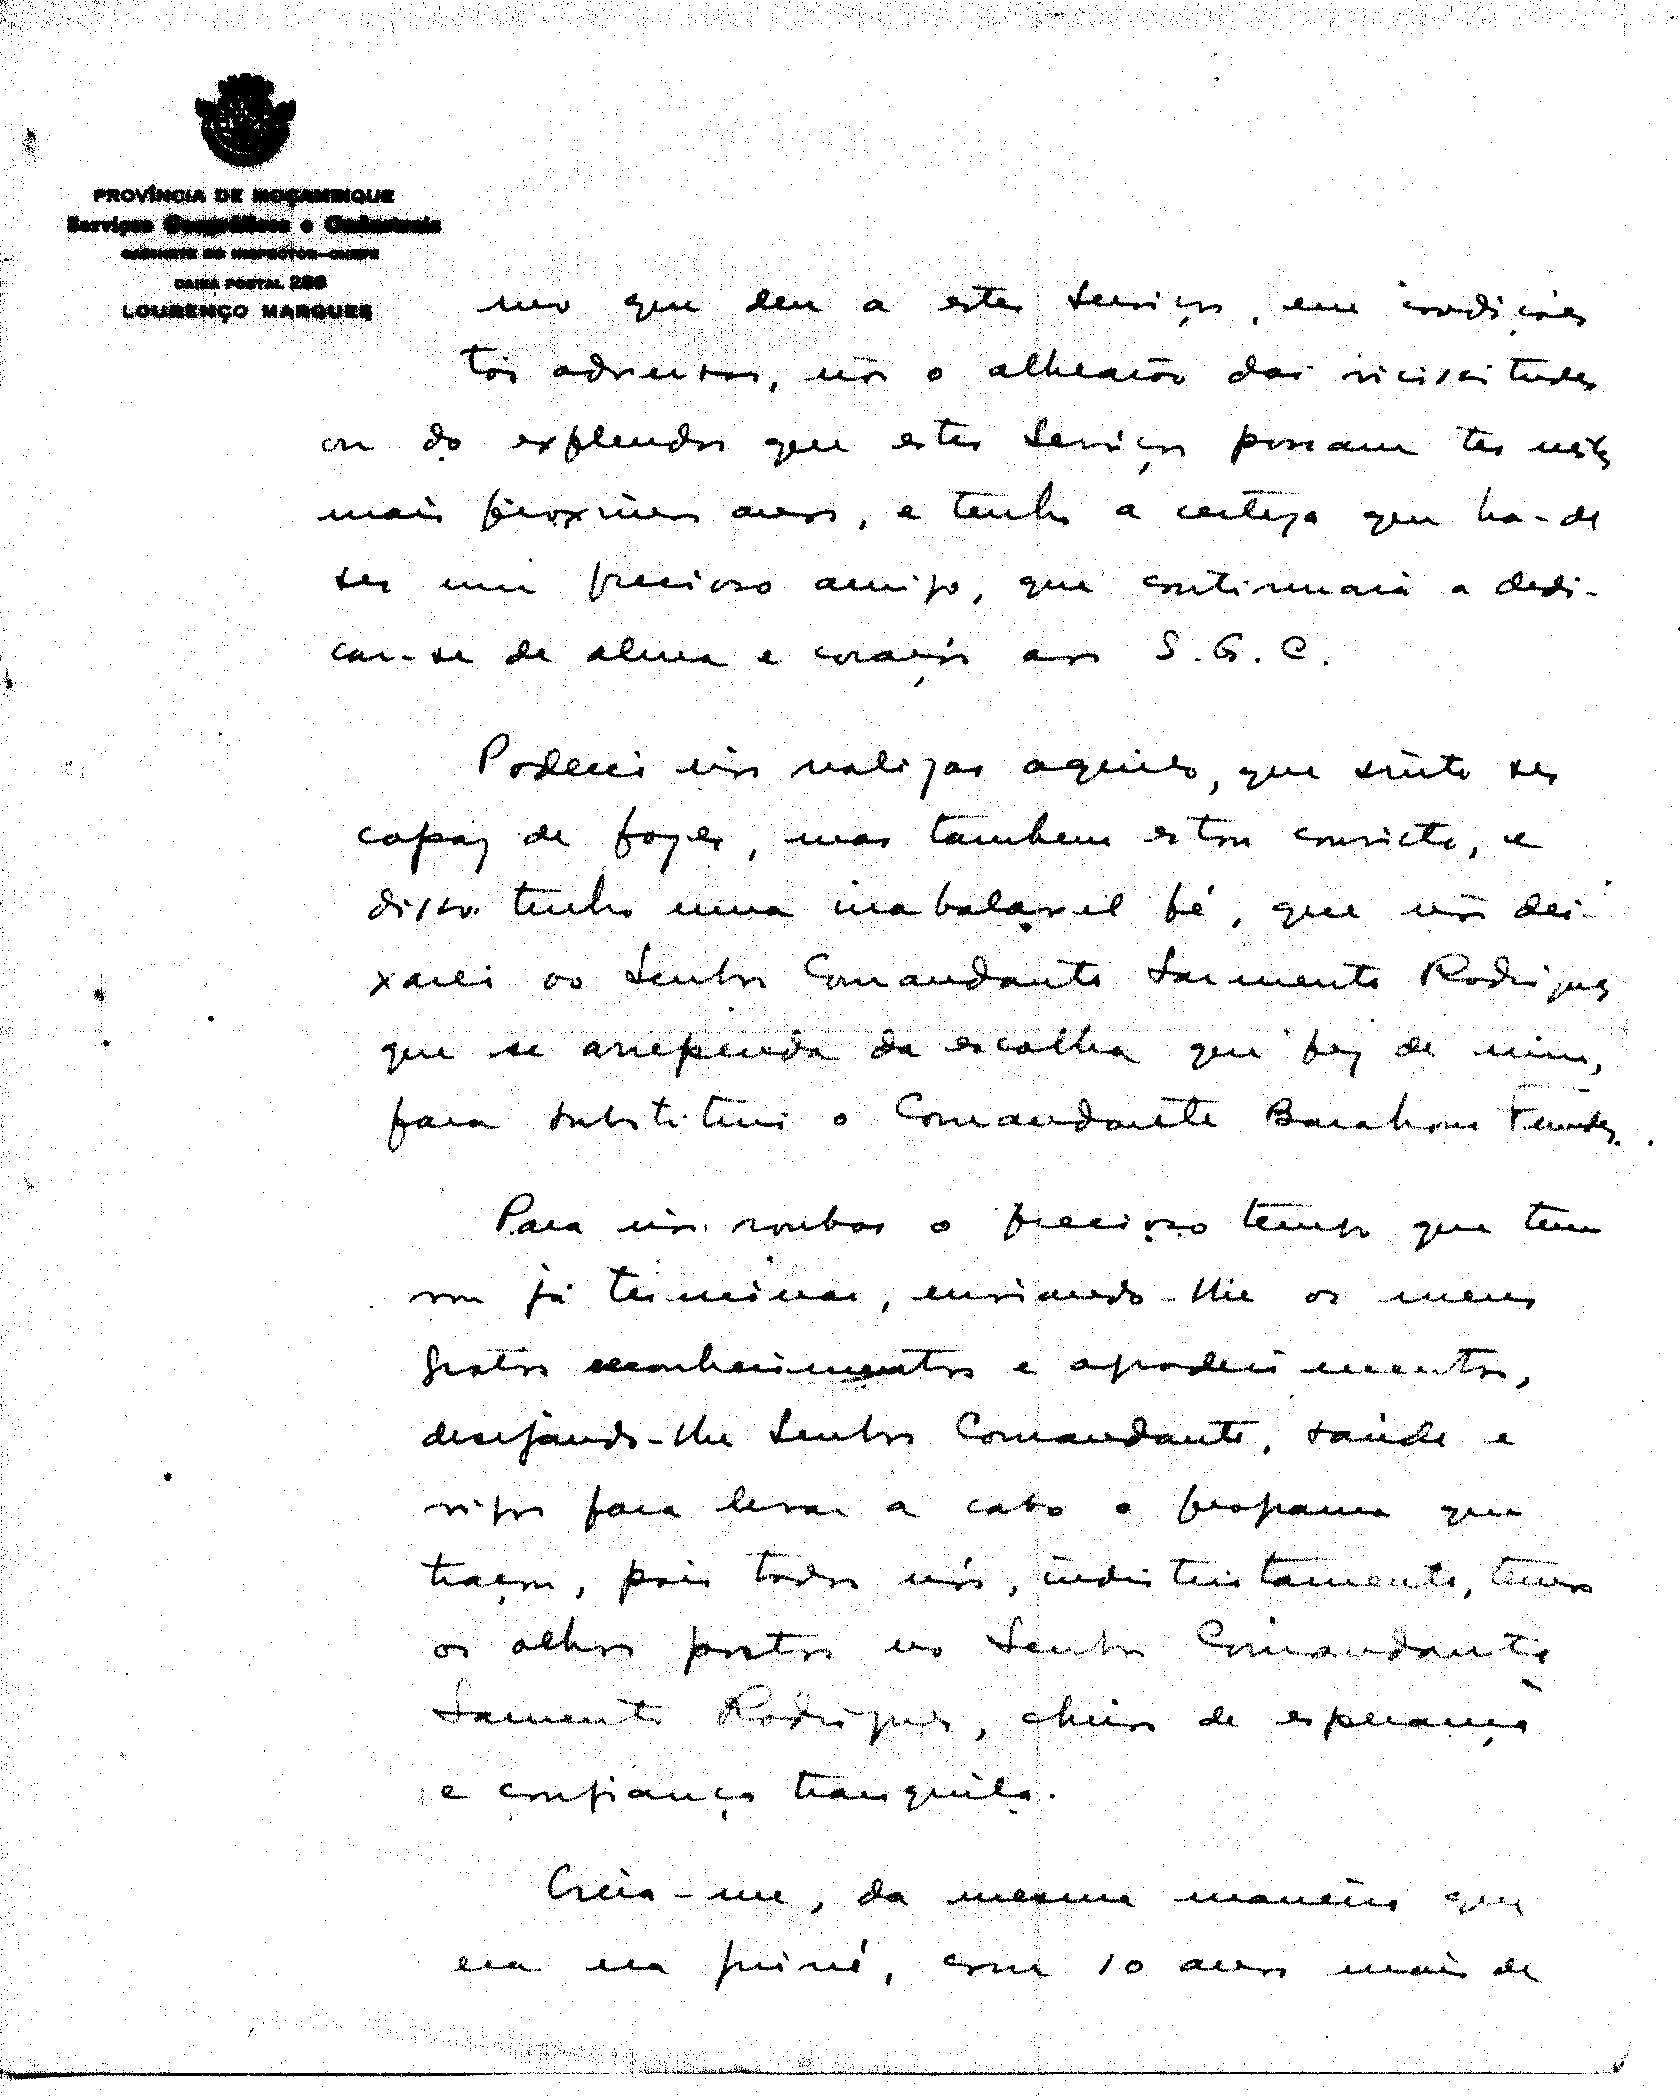 PROVÍNCIA DE MOÇAMBIQUE
Serviços Geográficos e Cadastrais
GABINETE DO INSPECTOR-CHEFE
CAIXA POSTAL 288
LOURENÇO MARQUES
mo que deu a estes serviços, em condições
tão adversas, não o alhearão das vicissitudes
ou do explendor que estes serviços possam ter nestes
mais próximos anos, e tenho a certeza que há-de
ser um precioso amigo, que continuará a dedi-
car-se de alma e coração aos S.G.C.
Poderei não realizar aquilo, que sinto ser
capaz de fazer, mas tambem estou convicto, e
disso tenho uma inabalavel fé, que não dei-
xarei ao Senhor Comandante Sarmento Rodrigues
que se arrependa da escolha que fez de mim,
para substituir o Comandante Barahona Fernandes.
Para não roubar o precioso tempo que tem
vou já terminar, enviando-lhe os meus
gratos reconhecimentos e agradecimentos,
desejando-lhe Senhor Comandante, saúde e
vigor para levar a cabo o programa que
traçou, pois todos nós, indistintamente, temos
os olhos postos no Senhor Comandante
Sarmento Rodrigues, cheios de esperança
e confiança tranquila.
Creia-me, da mesma maneira que
era na Guiné, com 10 anos mais de